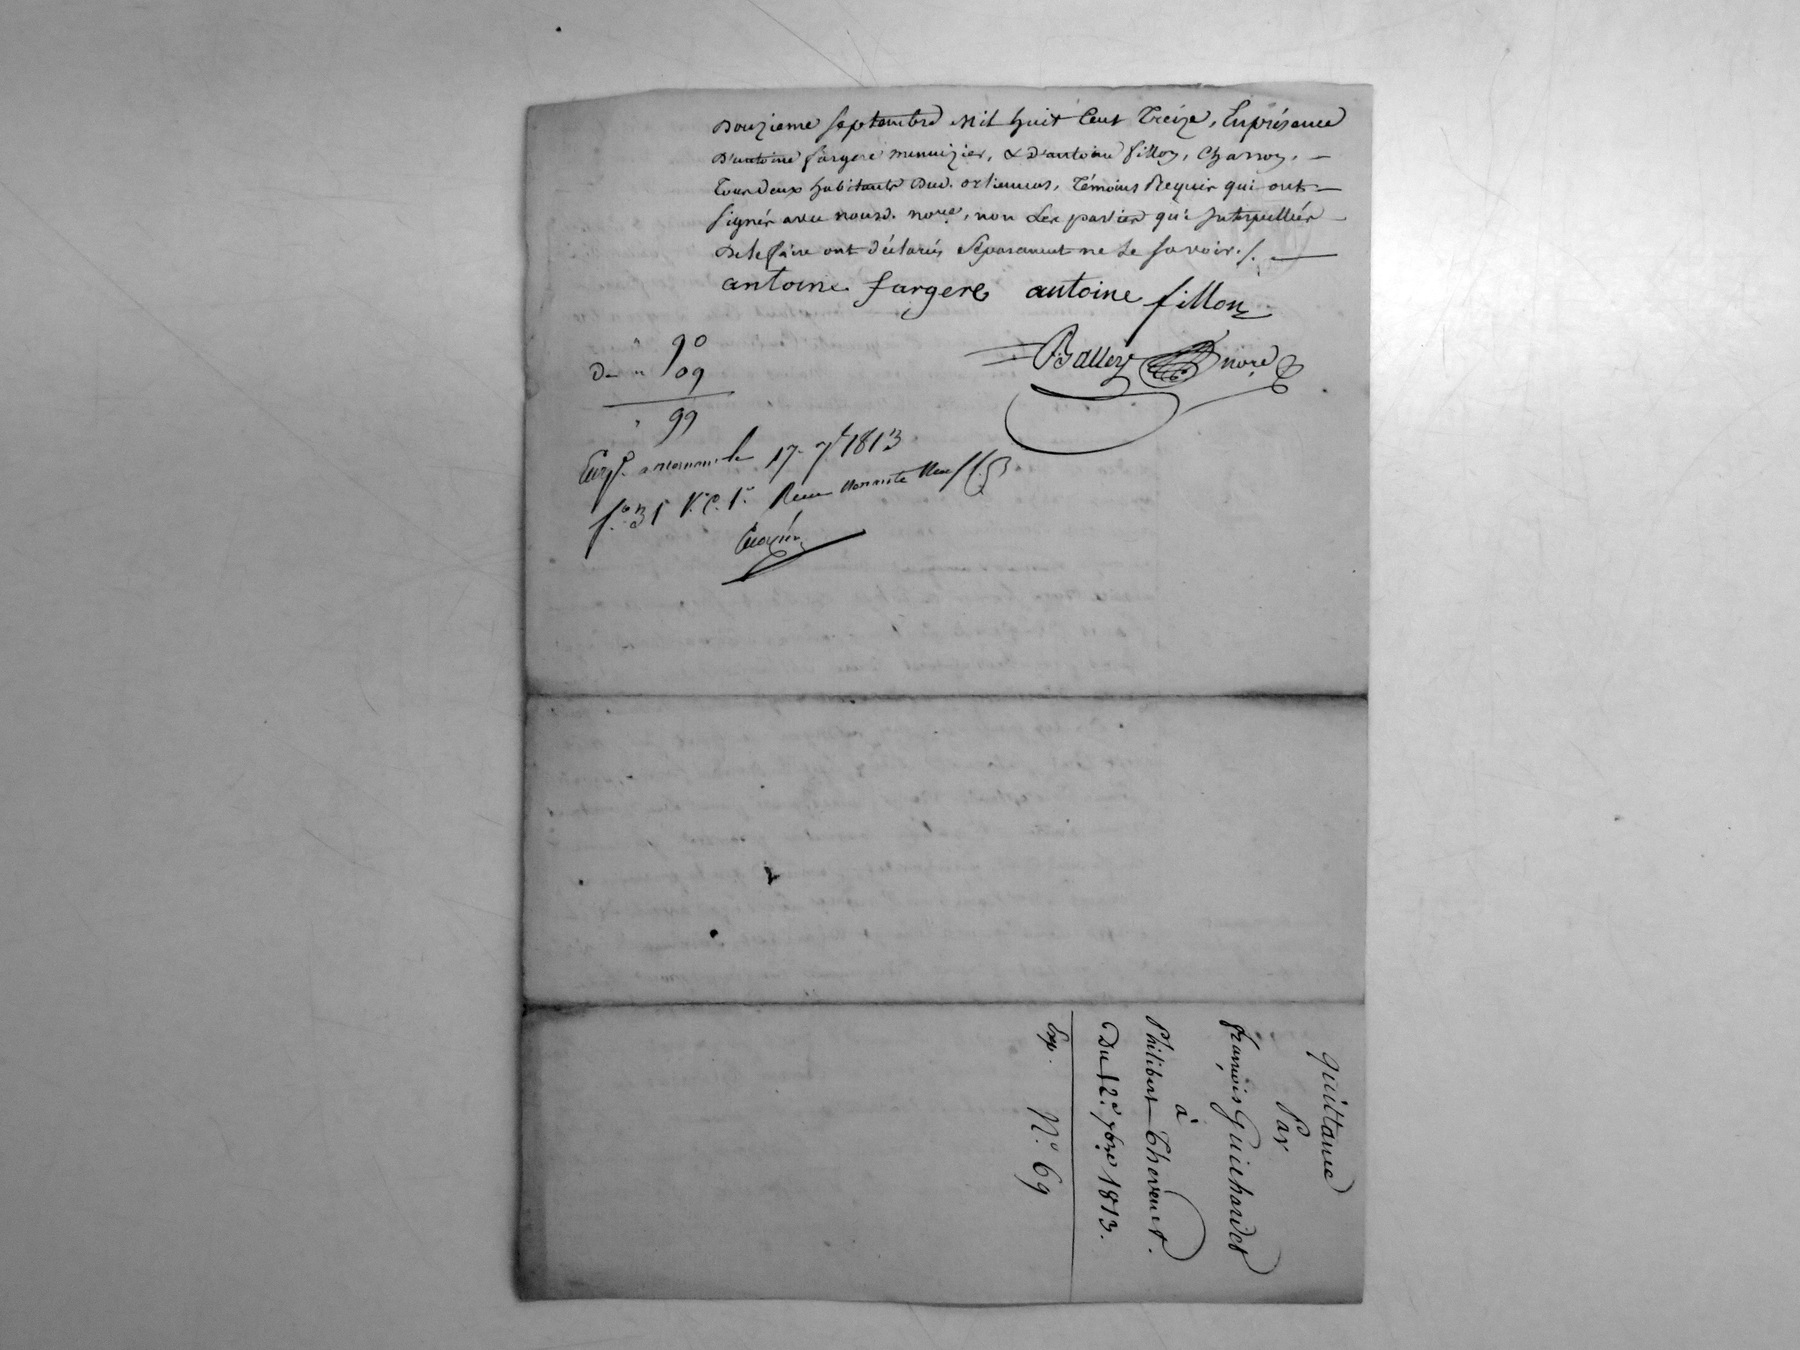 Douzieme Septembre mil huit Cent Treize, En présence
D'antoine fargere menuizier, & d'antoine fillon, Charron, —
Tous deux habitants Dud. orliennas, Témoins Requis qui ont —
signés avec nousd. nore, non Les parties qui Interpellées —
De le faire ont déclarés Séparament ne Le savoir./. —
antoine fargere antoine fillon
Balley nore
90
De 09
99
Enrgé a mornant le 17. 7bre 1813
fo. 31 Vo C. 1o Reçu Nonante Neuf
Quittance
Par
françois Guichardet
à
Philibert Thevenet.
Du 12e. 7bre 1813.
Exp. No. 69